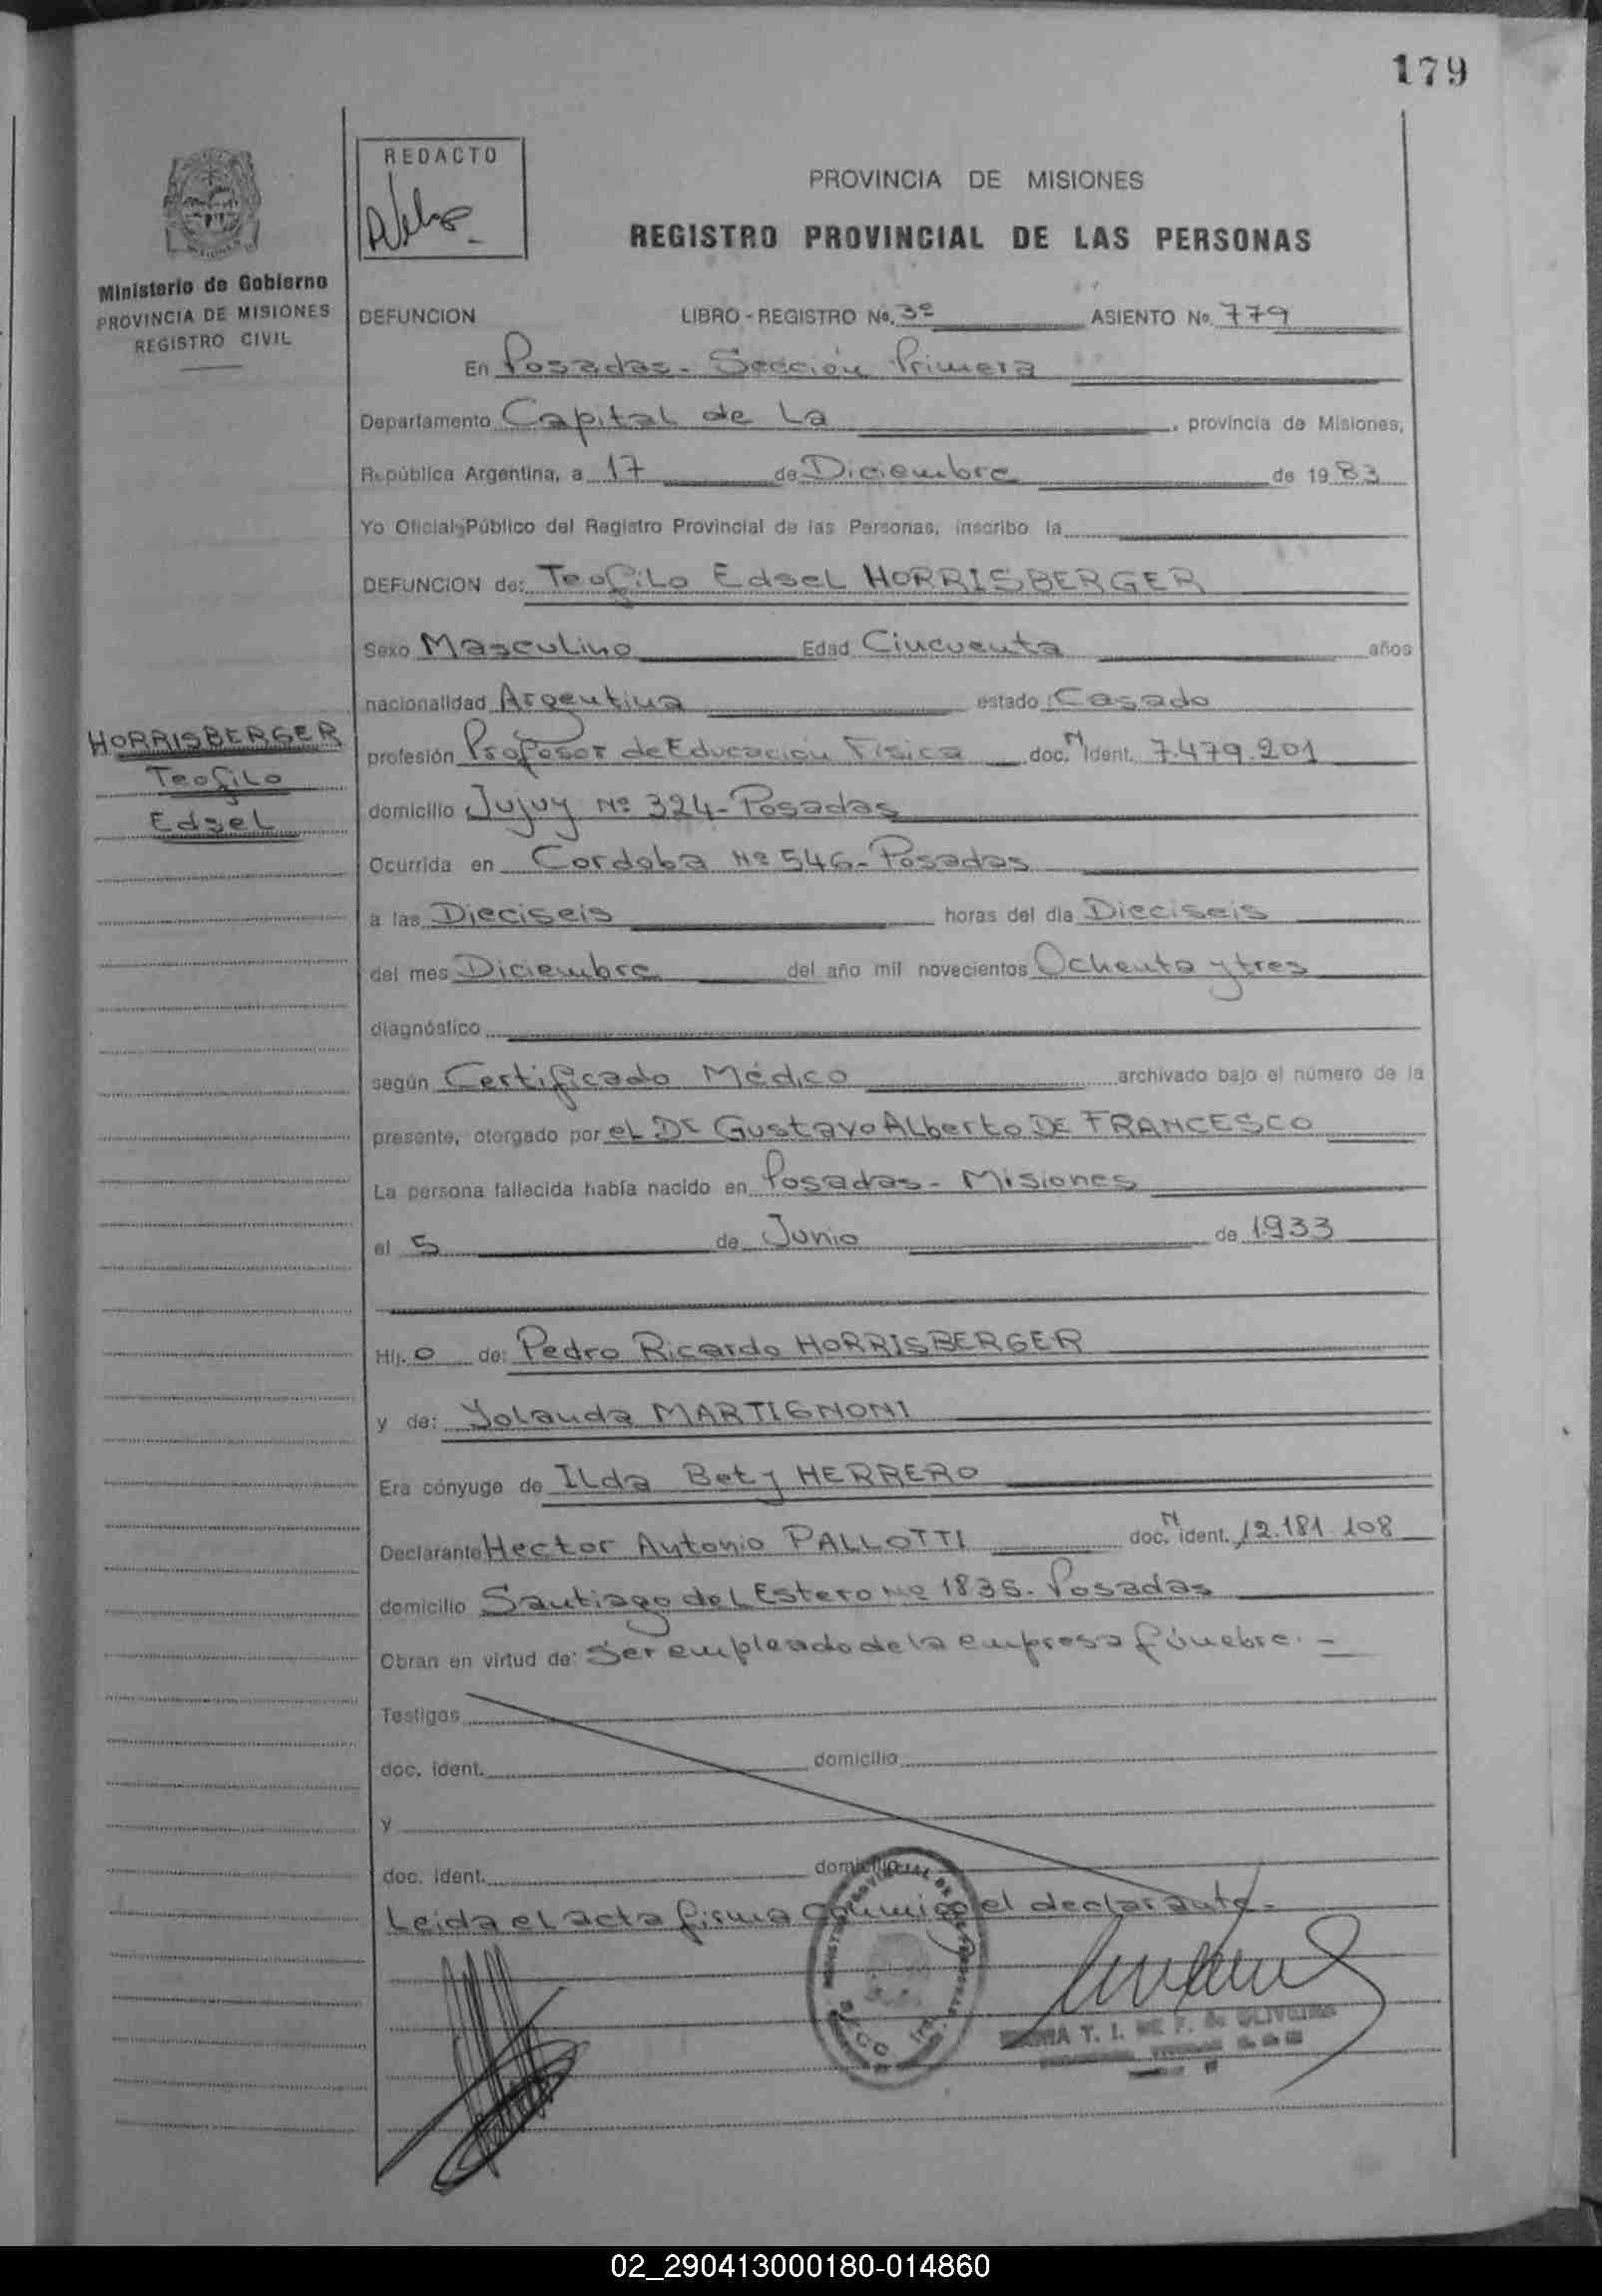 179
REDACTO
PROVINCIA DE MISIONES
REGISTRO PROVINCIAL DE LAS PERSONAS
Ministerio de Gobierno
PROVINCIA DE MISIONES
REGISTRO CIVIL
DEFUNCION LIBRO - REGISTRO No. 3º ASIENTO No. 779
En Posadas - Sección Primera
Departamento Capital de La , provincia de Misiones,
República Argentina, a 17 de Diciembre de 1983
Yo Oficial Público del Registro Provincial de las Personas, inscribo la
DEFUNCION de: Teofilo Edsel HORRISBERGER
Sexo Masculino Edad Cincuenta años
nacionalidad Argentina estado Casado
HORRISBERGER
Teofilo
Edsel
profesión Profesor de Educación Física doc. N ident. 7.479.201
domicilio Jujuy Nº 324 - Posadas
Ocurrida en Cordoba Nº 546 - Posadas
a las Dieciseis horas del dia Dieciseis
del mes Diciembre del año mil novecientos Ochenta y tres
diagnóstico
según Certificado Médico archivado bajo el número de la
presente, otorgado por el Dr Gustavo Alberto DE FRANCESCO
La persona fallecida había nacido en Posadas - Misiones
el 5 de Junio de 1933
Hij o de: Pedro Ricardo HORRISBERGER
y de: Yolanda MARTIGNONI
Era cónyuge de ILda Bety HERRERO
Declarante Hector Antonio PALLOTTI doc. N ident. 12.181.108
domicilio Santiago del Estero Nº 1835 - Posadas
Obran en virtud de: Ser empleado de la empresa fúnebre. -
Testigos
doc. ident. domicilio
y
doc. ident. domicilio
Leida el acta firma conmigo el declarante -
T. I. DE F. de OLIVEIRA
02_290413000180-014860